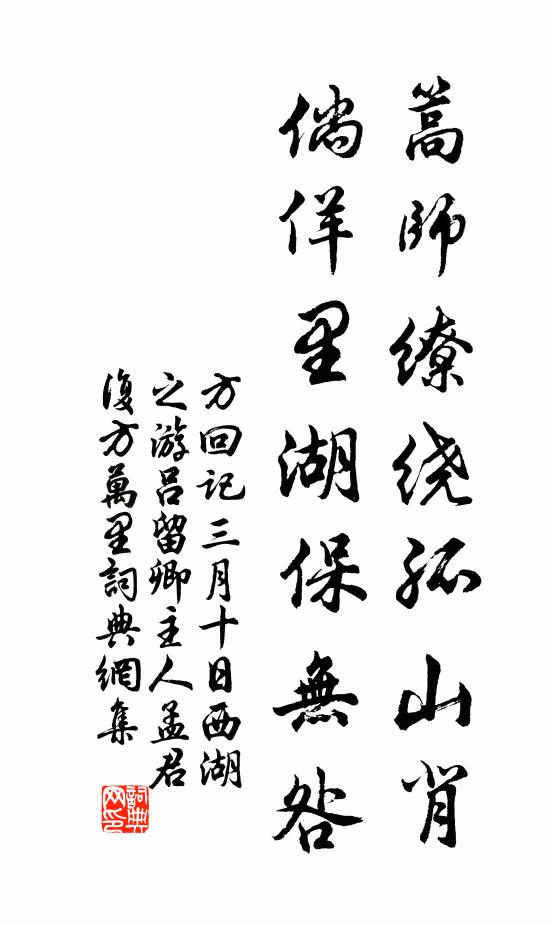 篙师缭绕孤山背
倘佯里湖保無咎
方回记三月十日西湖
之游吕留卿主人孟君
復方萬里詞典網集
詞典网印